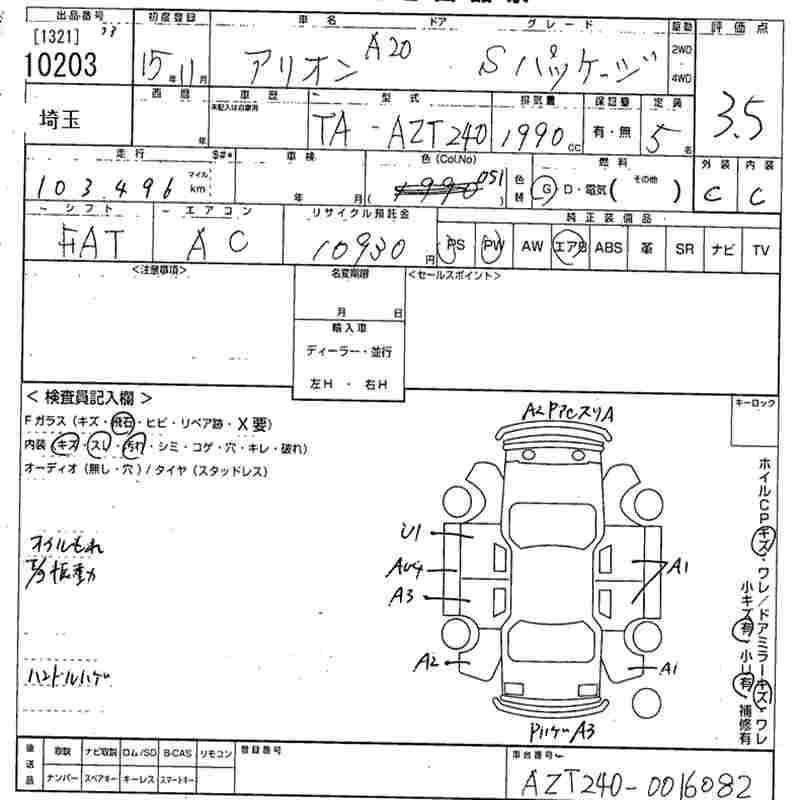 出品番号 初度登録 車名 ドア グレード 駆動 評価点
[1321]
10203
15年11月 アリオン A20 Sパッケージ
2WD
4WD
3.5
埼玉
西暦 車歴 型式 排気量 保証書 定員
未記入は自家用
年
TA-AZT240 1990cc 有・無 5名
走行 $#* 車検 色(Col.No) 色替 燃料 外装 内装
103,496 マイル km 年 月 (1990 051) Ⓖ D・電気(その他 ) C C
シフト エアコン リサイクル預託金 純正装備品
FAT AC 10930円 PS PW AW エアB ABS 革 SR ナビ TV
<注意事項> 名変期限 <セールスポイント>
月 日
輸入車
ディーラー・並行
左H・右H
<検査員記入欄> キーロック
Fガラス(キズ・飛石・ヒビ・リペア跡・X要)
内装(キズ・スレ・汚れ・シミ・コゲ・穴・キレ・破れ)
オーディオ(無し・穴)/タイヤ(スタッドレス)
オイルもれ
E/g振動
ハンドルハゲ
U1
AU4
A3
A2
A1
A1
ホイルCPキズ・ワレ/ドアミラーキズ・ワレ
小キズ有 小U有 補修有
後送品 取説 ナビ取説 ロム/SD B-CAS リモコン 登録番号 車台番号
ナンバー スペアキー キーレス スマートキー
AZT240-0016082